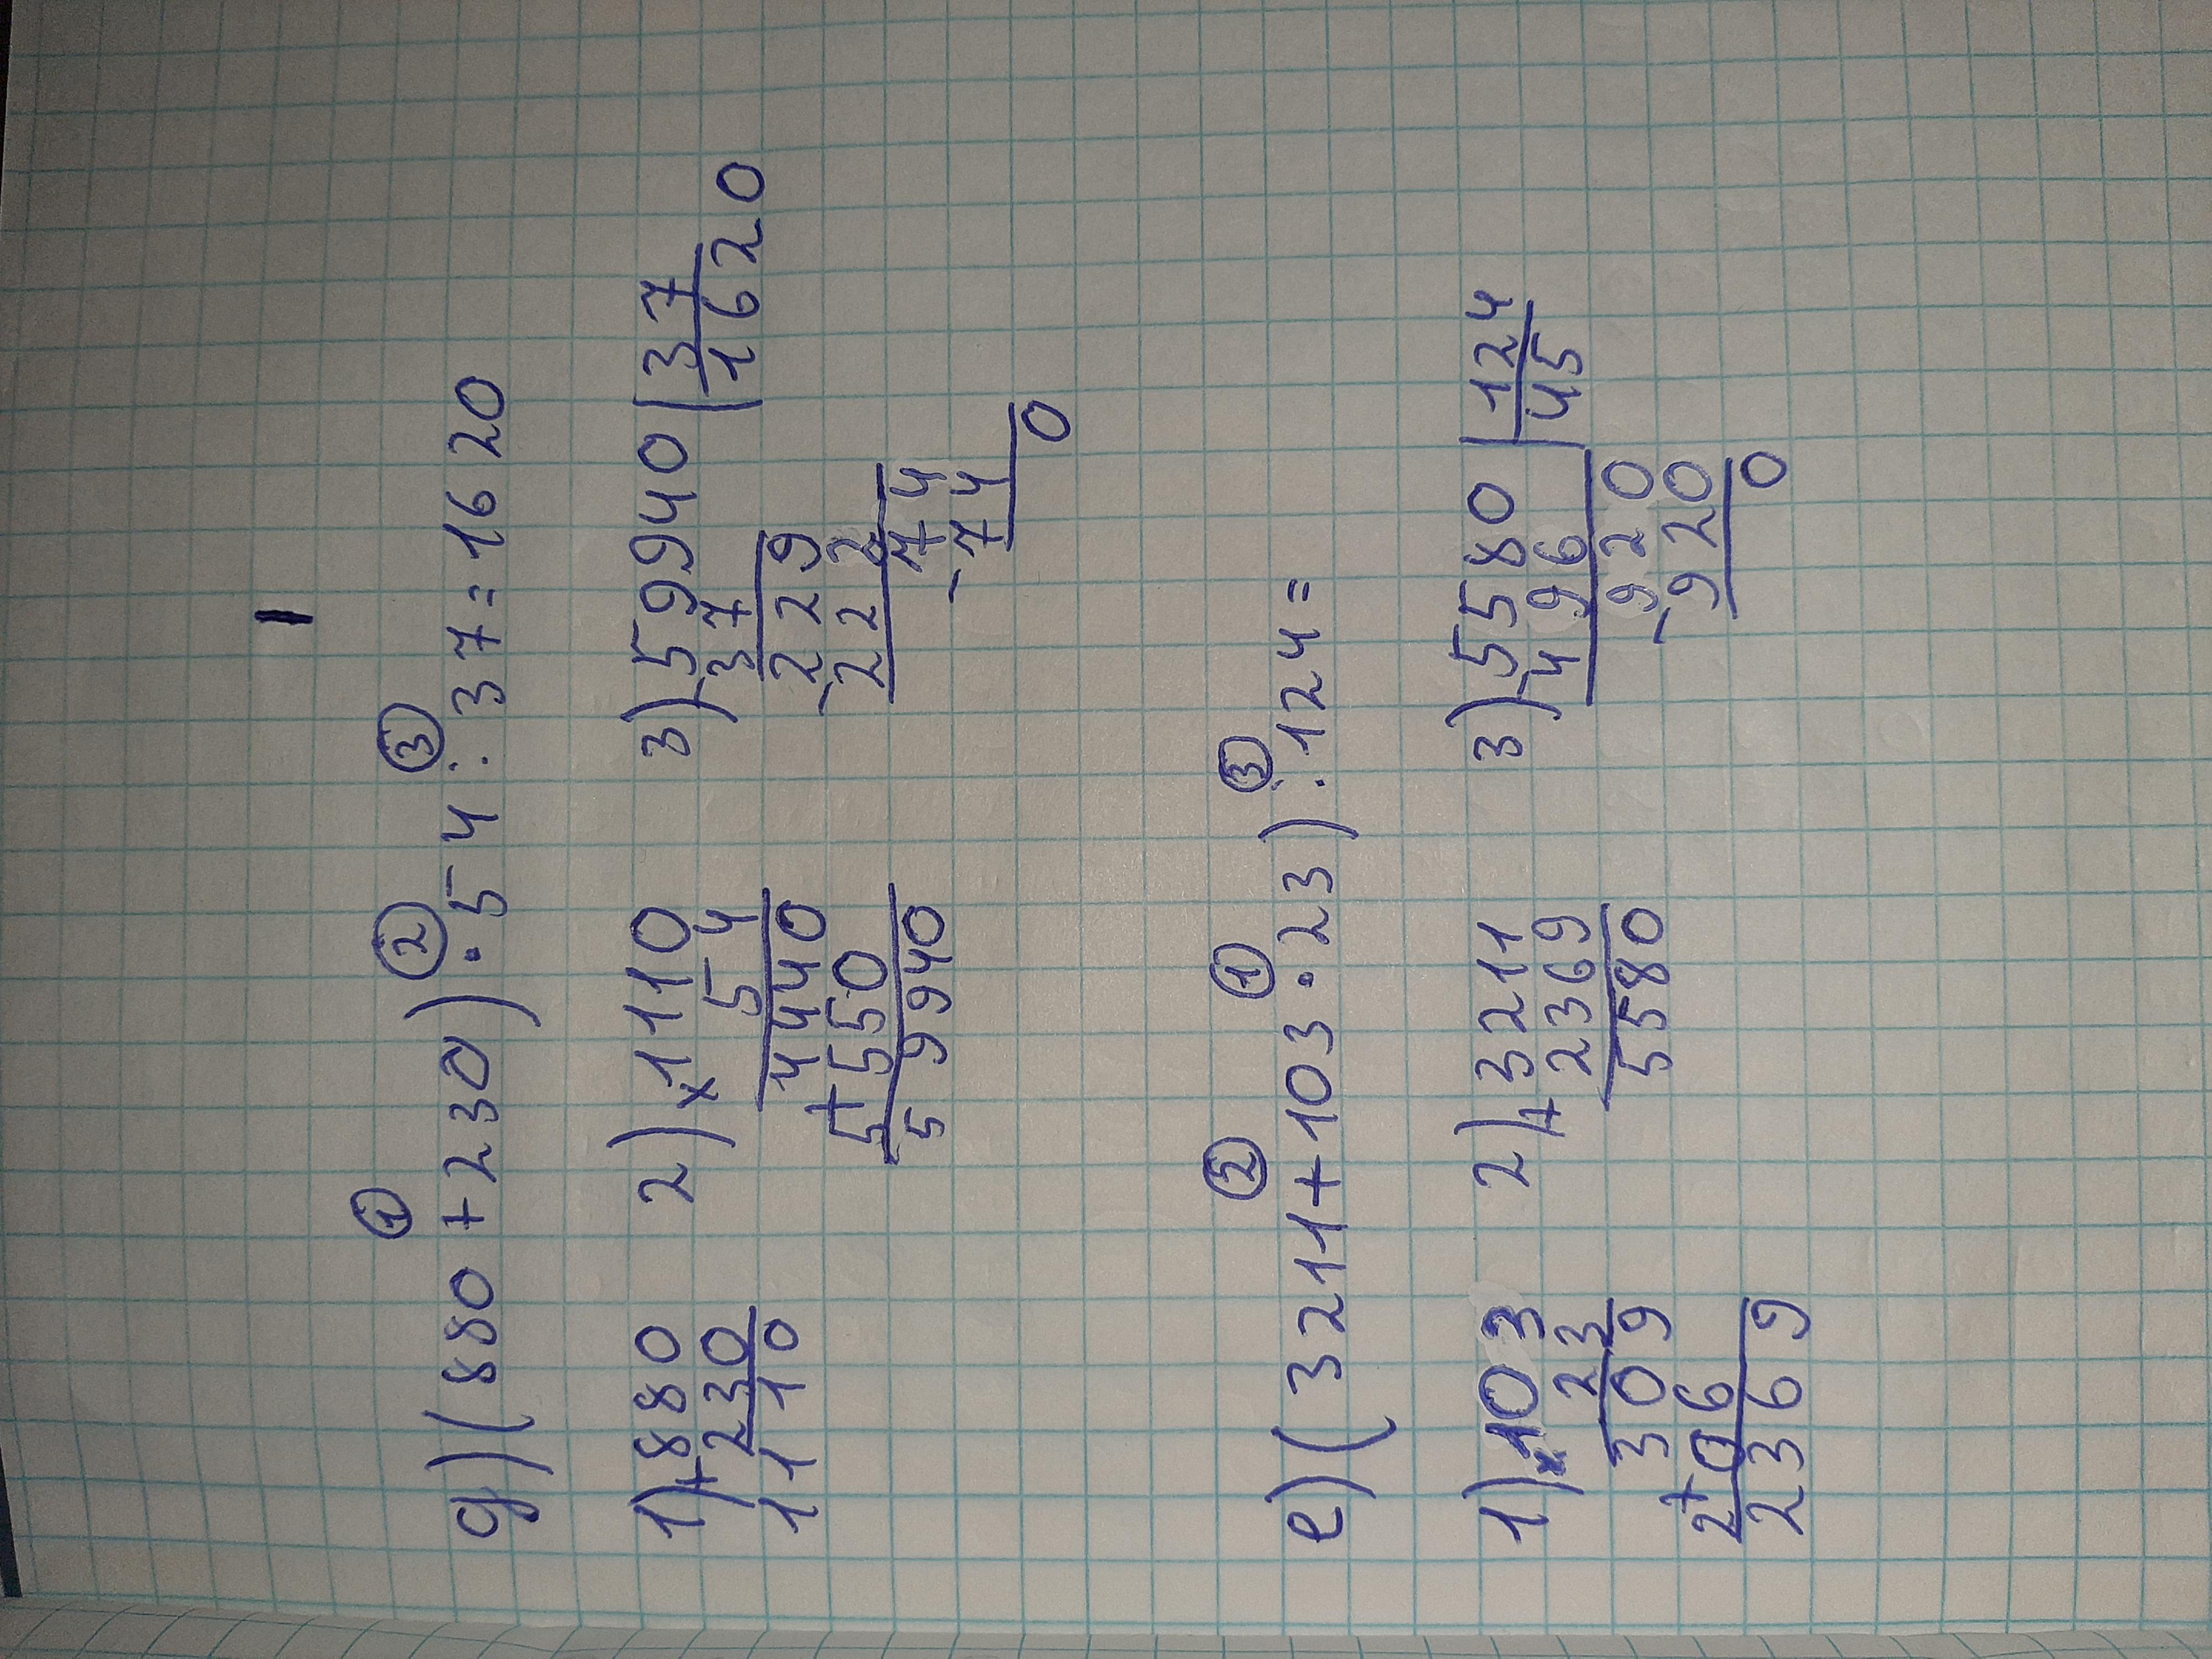 ① ② ③
д) (880+230)·54:37=1620
1) +880
230
1110
2) ×1110
54
4440
+5550
59940
3) -59940|37
37 1620
-229
222
-74
74
0
② ① ③
е) (3211+103·23):124=
1) ×103
23
309
+206
2369
2) +3211
2369
5580
3) -5580|124
496 45
-920
920
0